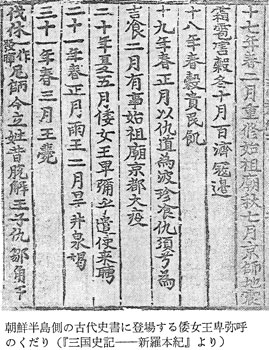 十七年春二月重修始祖廟秋七月京師地震
霜雹害穀冬十月百濟寇邊
十八年春穀貴民飢
十九年春正月以仇道為波珍飡仇須兮為一
吉飡二月有事始祖廟京都大疫
二十年夏五月倭女王卑彌乎遣使來聘
二十一年春正月雨土二月旱井泉竭
三十一年春三月王薨
伐休一作發暉尼師今立姓昔脫解王子仇鄒角干
朝鮮半島側の古代史書に登場する倭女王卑弥呼
のくだり(『三国史記――新羅本紀』より)